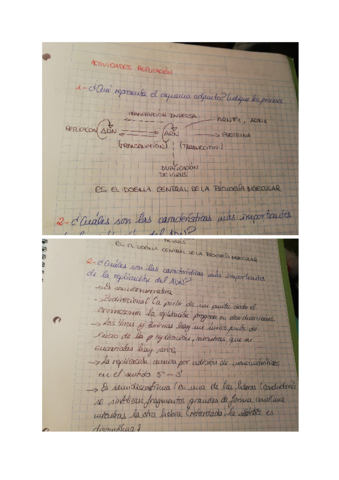 ACTIVIDADES REPLICACIÓN
1-¿Qué representa el esquema adjunto? Indique los procesos
TRANSCRIPCIÓN INVERSA
ARNt,
REPLICACIÓN ADN ARN PROTEÍNA
(TRANSCRIPCIÓN) (TRADUCCIÓN)
DUPLICACIÓN
DE VIRUS
ES EL DOGMA CENTRAL DE LA BIOLOGÍA MOLECULAR
2-¿Cuáles son las características más importantes
ES EL DOGMA CENTRAL DE LA BIOLOGÍA MOLECULAR
2-¿Cuáles son las características más importantes
de la replicación del ADN?
→ Es semiconservativa
- Bidireccional (a partir de un punto dado el
cromosoma la replicación progresa en dos direcciones
→ En virus y bacterias hay un único punto de
inicio de la replicación, mientras que en
eucariotas hay varios
→ La replicación ocurre por adición de
en el sentido 5' - 3'
→ Es semidiscontinua (en una de las hebras (conductora)
se sintetizan fragmentos grandes de forma continua
mientras la otra hebra (retardada) la síntesis es
discontinua)